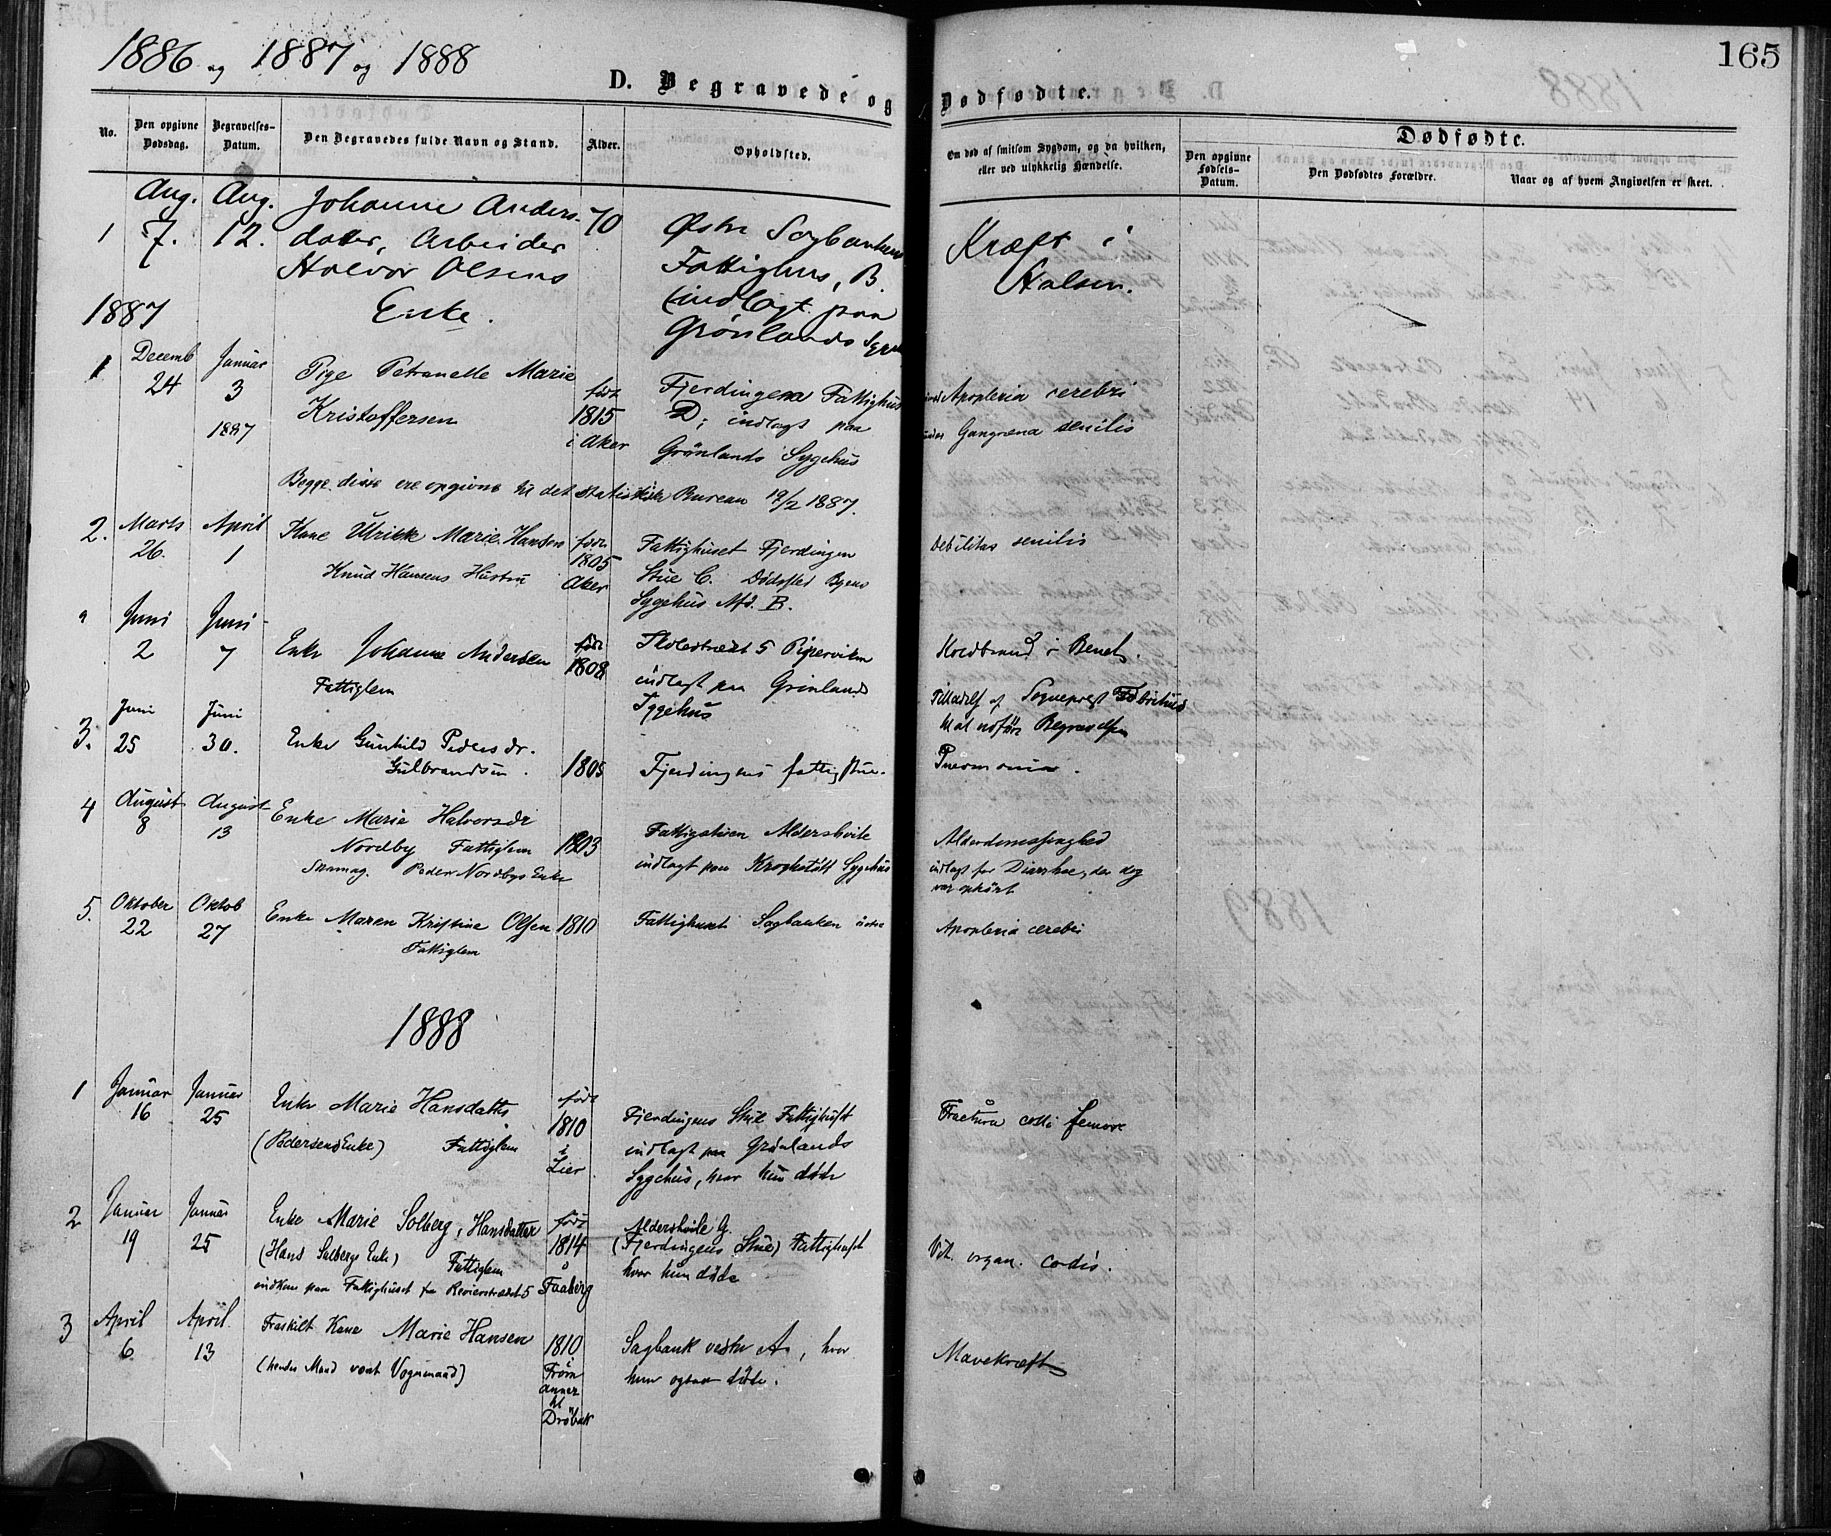 1886 og 1887 og 1888
165
D. Begravede og Dødfødte.
No.
Den opgivne Dødsdag.
Begravelses-Datum.
Den Begravedes fulde Navn og Stand.
Alder.
Opholdsted.
Om død af smitsom Sygdom, og da hvilken, eller ved ulykkelig Hændelse.
Den opgivne Fødsels-Datum.
Dødfødte.
Den Dødfødtes Forældre.
Naar og af hvem Angivelsen er skeet.
Aug. Aug. Johanne Anders- 70
1 7. 12. datter, Arbeider Østre Sagbankens Kræft i
Halvor Olsens Fattighus, B. Halsen.
Enke. (indlagt paa
1887 Grønlands
1 Decemb Januar Pige Petranelle Marie født Fjerdingens Fattighus Apoplexia cerebri
24 3 Kristoffersen 1815 D; indlagt paa Gangræna senilis
1887 i Aker Grønlands Sygehus
Begge disse ere opgivne til det statistiske Bureau 19/2 1887.
2. Marts April Kone Ulrikke Marie Hansen født Fattighuset Fjerdingen Debilitas senilis
26. 1 Knud Hansens Hustru 1805 Stue C. Dødssted Byens
Aker Sygehus Afd. B.
Juni Juni
2 7 Enke Johanne Andersen født Skolestrædt 5 Piperviken Koldbrand i Benet.
Fattiglem 1808 indlagt paa Grønlands
Sygehus Tilladelse af Sogneprest
til at udføre Begravelsen
3. Juni Juni
25 30. Enke Gunhild Pedersdr. Pneumonia.
Gulbrandsen. 1805 Fjerdingens fattigstue.
4 August August Enke Marie Halvorsdr
8 13 Nordby Fattiglem 1803 Fattigstuen Aldershvile Alderdomssvaghed
Skomag. Peder Nordbys Enke indlagt paa Krohgstøtt Sygehus indlagt for Diarrhoe, der dog
var ophørt
5. Oktober Oktob Enke Maren Kristine Olsen 1810 Fattighuset Sagbanken østre Apoplexia cerebri
22 27 Fattiglem
1888
1 Januar Januar Enke Marie Hansdatter født
16 25 1810 Fjerdingens Stue Fattighuset Fractura colli femoris
(Pedersens Enke) Fattiglem i indlagt paa Grønlands
Lier Sygehus, hvor hun døde
2 Januar Januar Enke Marie Solberg, Hansdatter født Aldershvile G.
19 25 (Hans Solbergs Enke) Fattiglem 1814 (Fjerdingens Stue) Fattighuset Vit. organ. cordis.
indkom paa Fattighuset fra Revierstrædet 5 Faaberg hvor hun døde
3 April April Fraskilt Kone Marie Hansen
6 13 1810 Sagbank vestre A., hvor Mavekræft
(hendes Mand var Vognmand) hun ogsaa døde.
annex
til
Drøbak